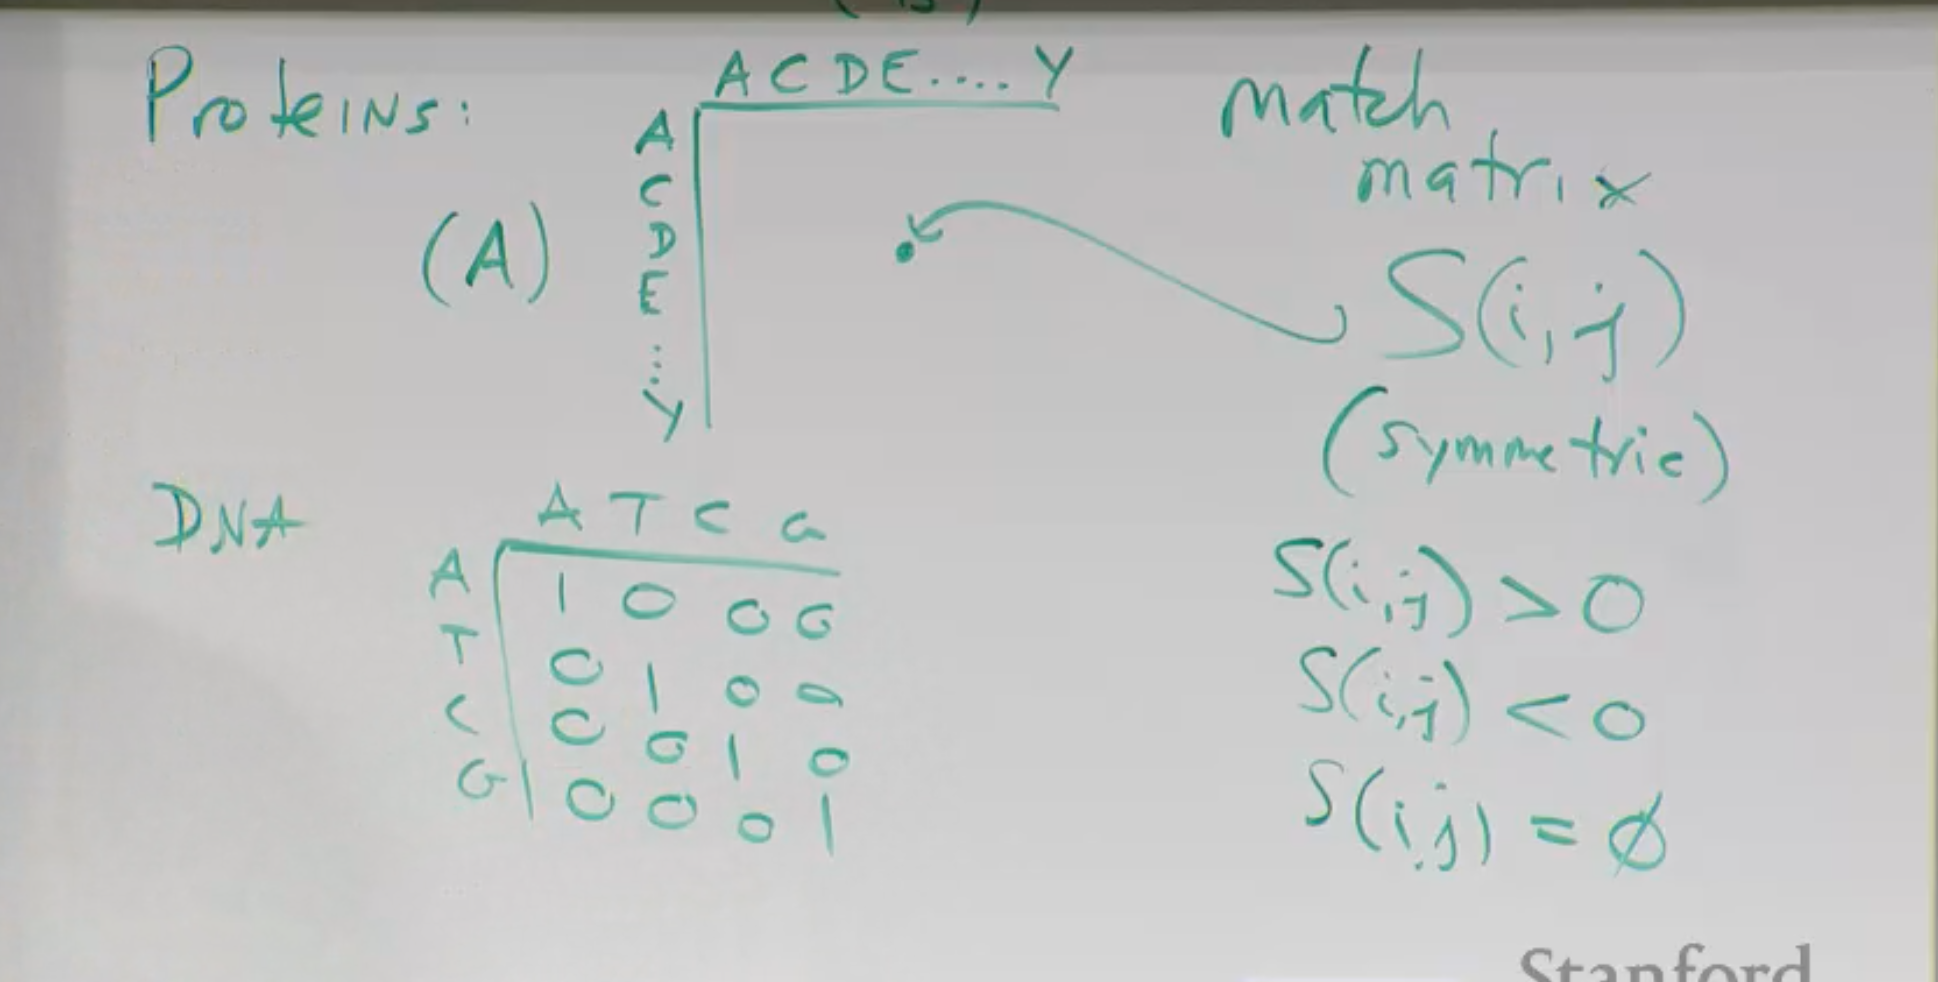 Proteins:
A C D E .... Y
A
C
D
E
....
Y
(A)
match
matrix
S(i,j)
(symmetric)
DNA
A T C G
A 1 0 0 0
T 0 1 0 0
C 0 0 1 0
G 0 0 0 1
S(i,j) > 0
S(i,j) < 0
S(i,j) = ∅
Stanford